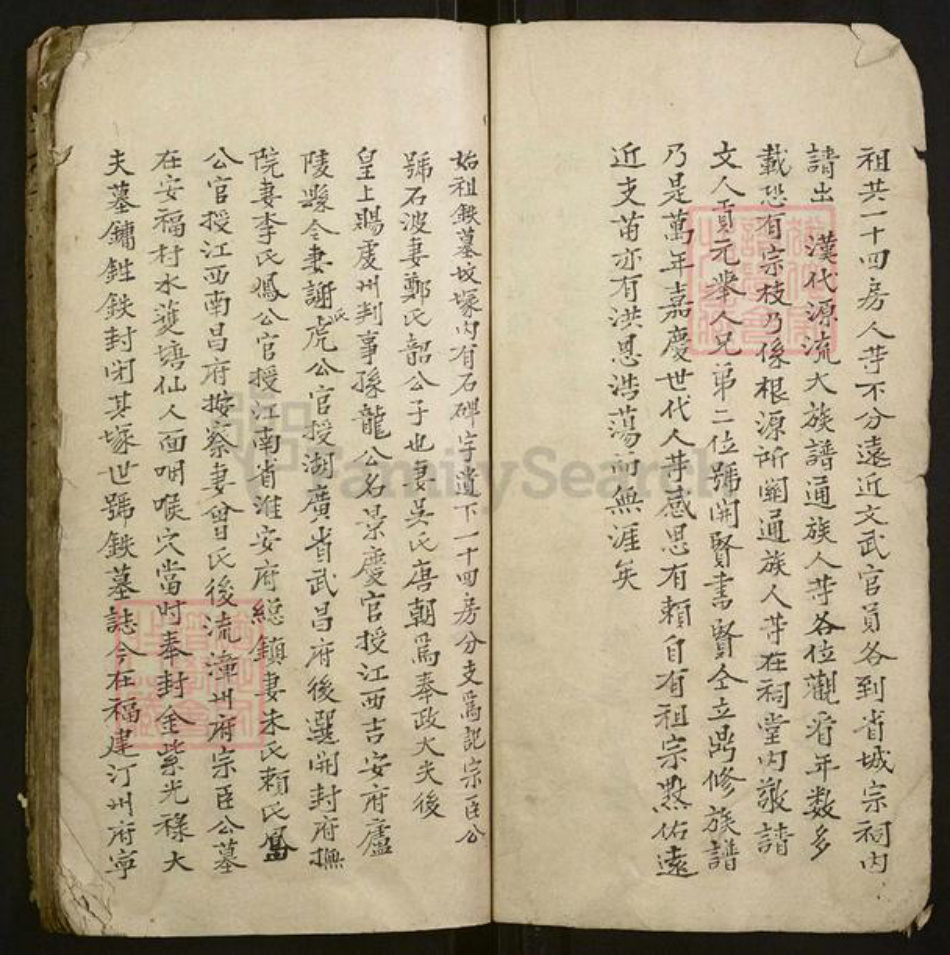 祖共一十四房人等不分遠近文武官員各到省城宗祠内
請出 漢代源流大族譜通族人等各位觀看年数多
載恐有宗枝乃係根源所關通族人等在祠堂内敬請
文人貢元舉人兄弟二位號開賢書賢仝立爲修族譜
乃是萬年嘉慶世代人等感思有賴自有祖宗默佑遠
近支苗亦有洪恩浩蕩而無涯矣
始祖鉄墓坟塚内有石碑字遺下一十四房分支爲記宗臣公
號石波妻鄭氏韶公子也妻吳氏唐朝爲奉政大夫後
皇上賜虔州判事孫龍公名景慶官授江西吉安府廬
陵縣令妻謝氏虎公官授湖廣省武昌府後選開封府撫
院妻李氏鳳公官授江南省淮安府総鎮妻朱氏賴氏鳳
公官授江西南昌府按察妻曾氏後流漳州府宗臣公墓
在安福村水蓑塘仙人面咽喉穴當时奉封金紫光祿大
夫墓鏞鉎鉄封闭其塚世號鉄墓誌今在福建汀州府寧
FamilySearch